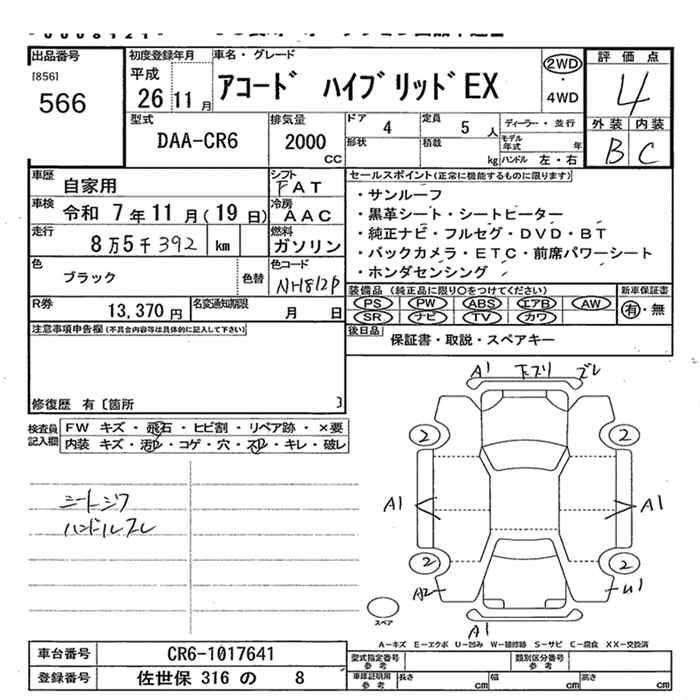 出品番号
[856]
566
初度登録年月
平成
26 11 月
車名・グレード
アコード ハイブリッドEX
2WD
・
4WD
評価点
4
外装 内装
B C
型式
DAA-CR6
排気量
2000
CC
ドア
4
定員
5 人
形状
積載
kg
ディーラー・並行
モデル年式 年
ハンドル 左・右
車歴
自家用
シフト
FAT
車検
令和 7年11月(19日)
冷房
AAC
走行
8万5千392 km
燃料
ガソリン
色
ブラック
色替
色コード
NH812P
R券
13,370円
名変通知期限
月 日
セールスポイント(正常に機能するものに限ります)
・サンルーフ
・黒革シート・シートヒーター
・純正ナビ・フルセグ・DVD・BT
・バックカメラ・ETC・前席パワーシート
・ホンダセンシング
装備品(純正品に限り〇をつけてください)
PS PW ABS エアB AW
SR ナビ TV カワ
新車保証書
有・無
後日品
保証書・取説・スペアキー
注意事項申告欄(不具合内容等は具体的に記入して下さい)
修復歴 有〔箇所 〕
検査員記入欄
FW キズ・飛石・ヒビ割・リペア跡・×要
内装 キズ・汚レ・コゲ・穴・スレ・キレ・破レ
シートシワ
ハンドルスレ
A1 下スリ ズレ
2 2
A1 A1
2 2
A2 U1
A1
スペア
A-キズ E-エクボ U-凹み W-補修跡 S-サビ C-腐食 XX-交換済
車台番号
CR6-1017641
登録番号
佐世保 316 の 8
型式指定番号
参考
類別区分番号
参考
車庫証明用
参考
長さ cm
幅 cm
高さ cm